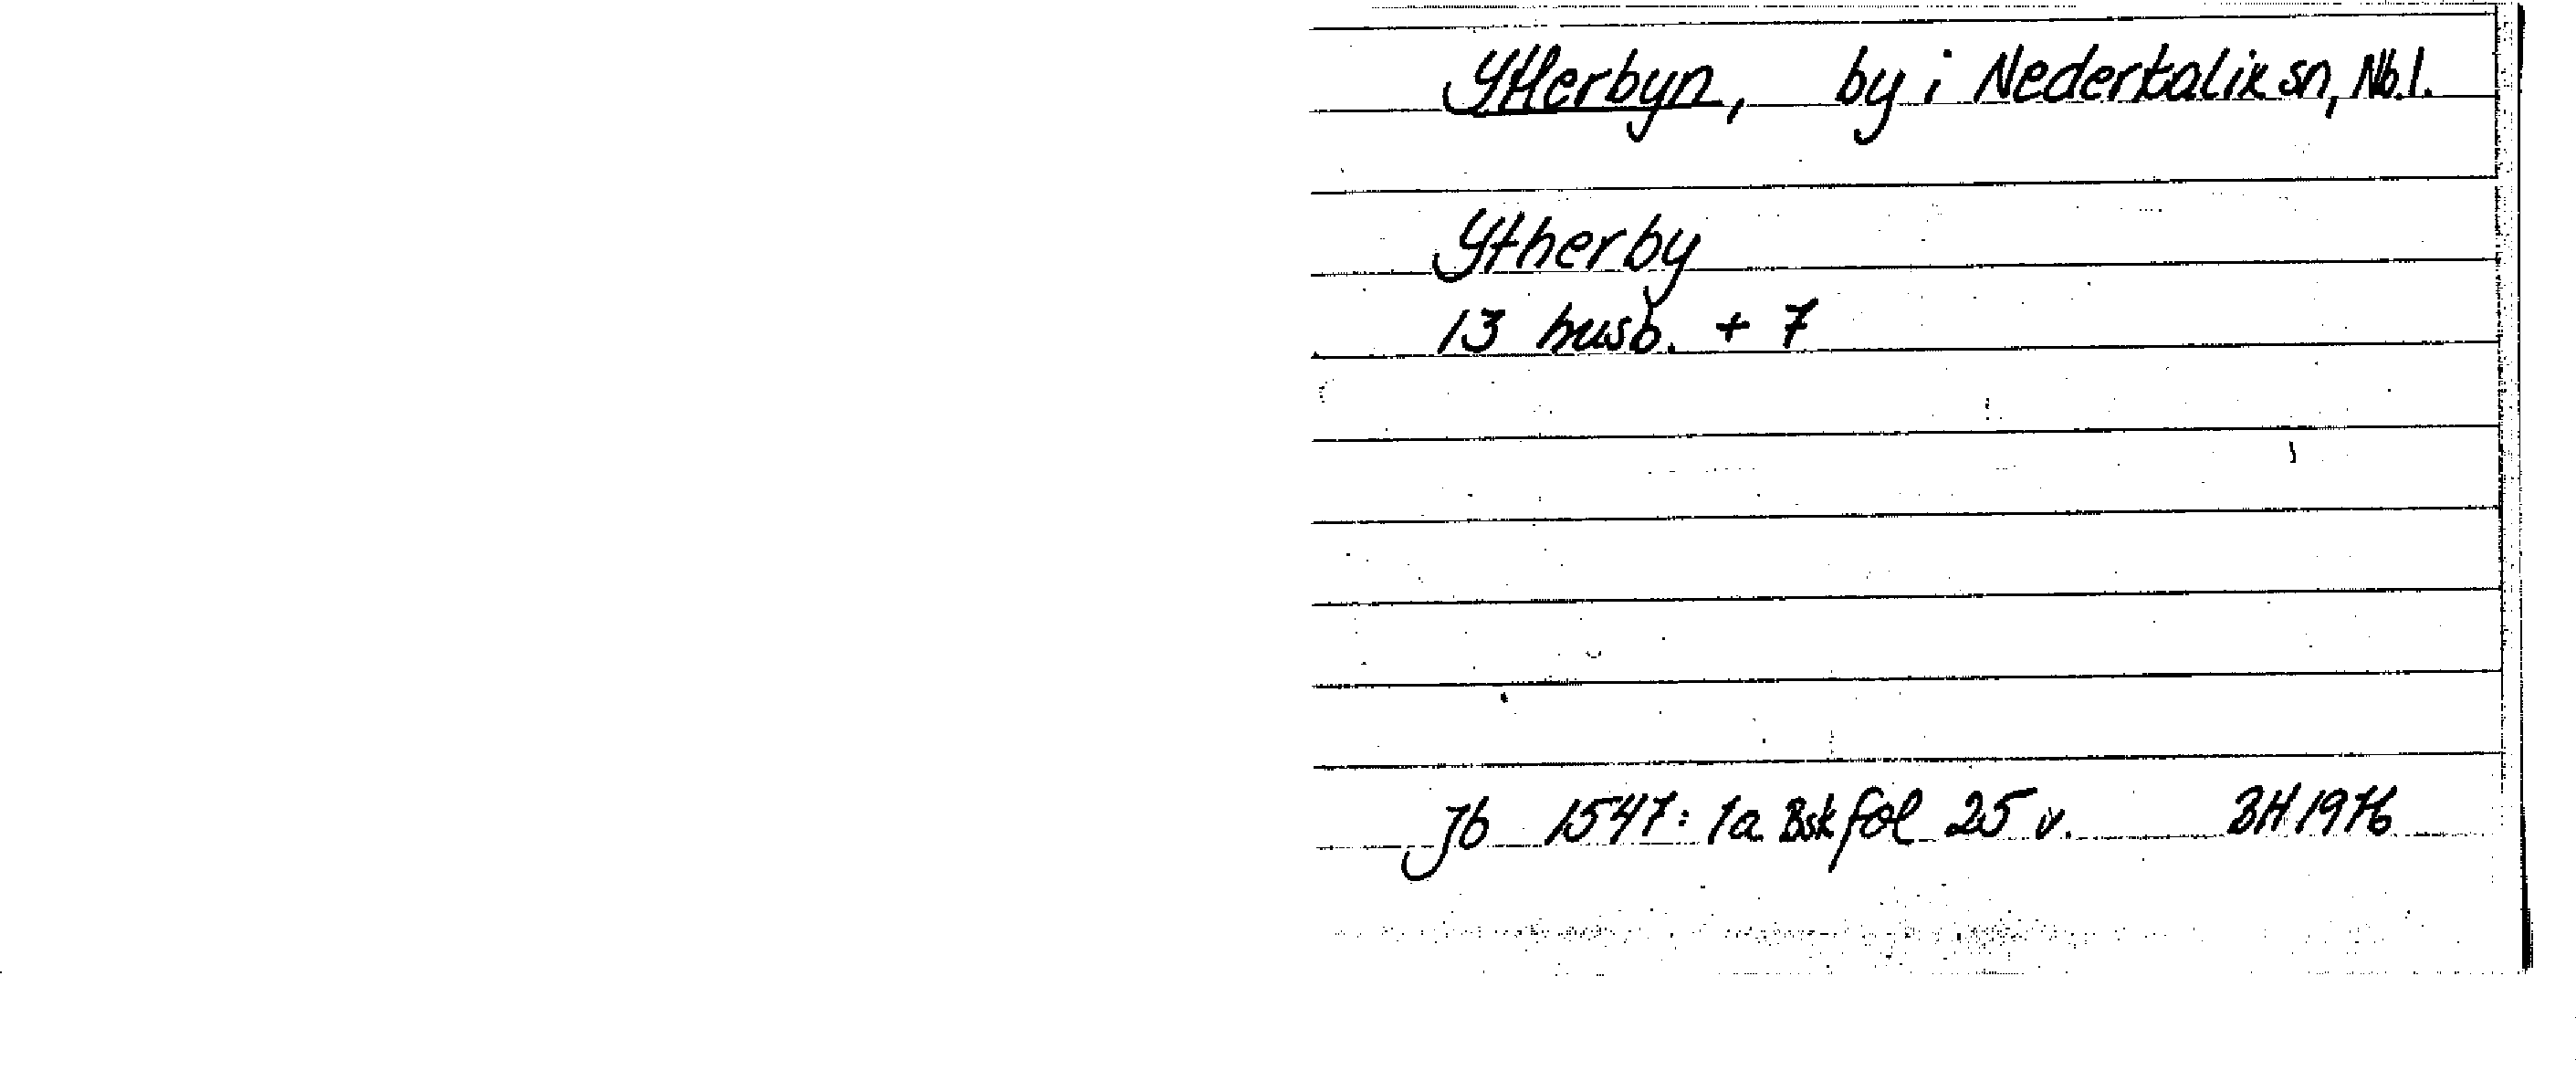 Ytterbyn, by i Nederkalix sn, Nb.l.
Ytherby
13 husb. + 7
Jb 1547: 1a Bsk fol 25 v. BH 1976